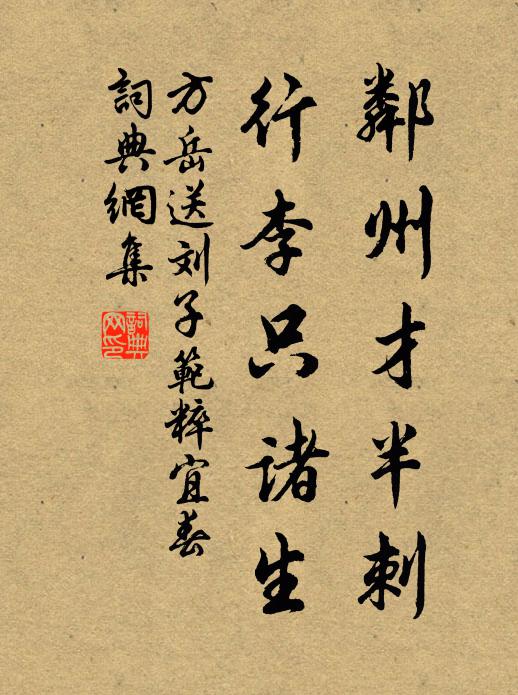 鄰州才半刺
行李只諸生
方岳送刘子範粹宜春
詞典網集
詞典网印